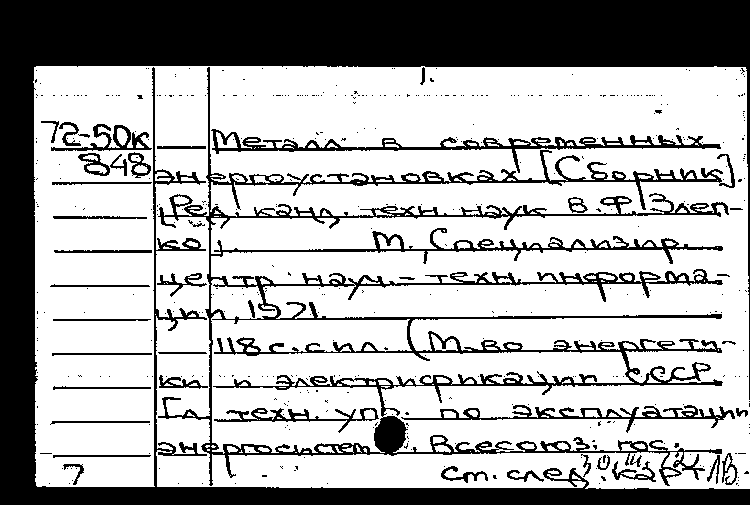 1.
72-50к Металл в современных
848 энергоустановках. [Сборник].
[Ред. канд. техн. наук В.Ф. Злеп-
ко]. М., Специализир.
центр науч.-техн. информа-
ции, 1971.
118 с. с ил. (М-во энергети-
ки и электрификации СССР
Гл. техн. упр. по эксплуатации
энергосистем. Всесоюз. гос.
7 См. след. карт